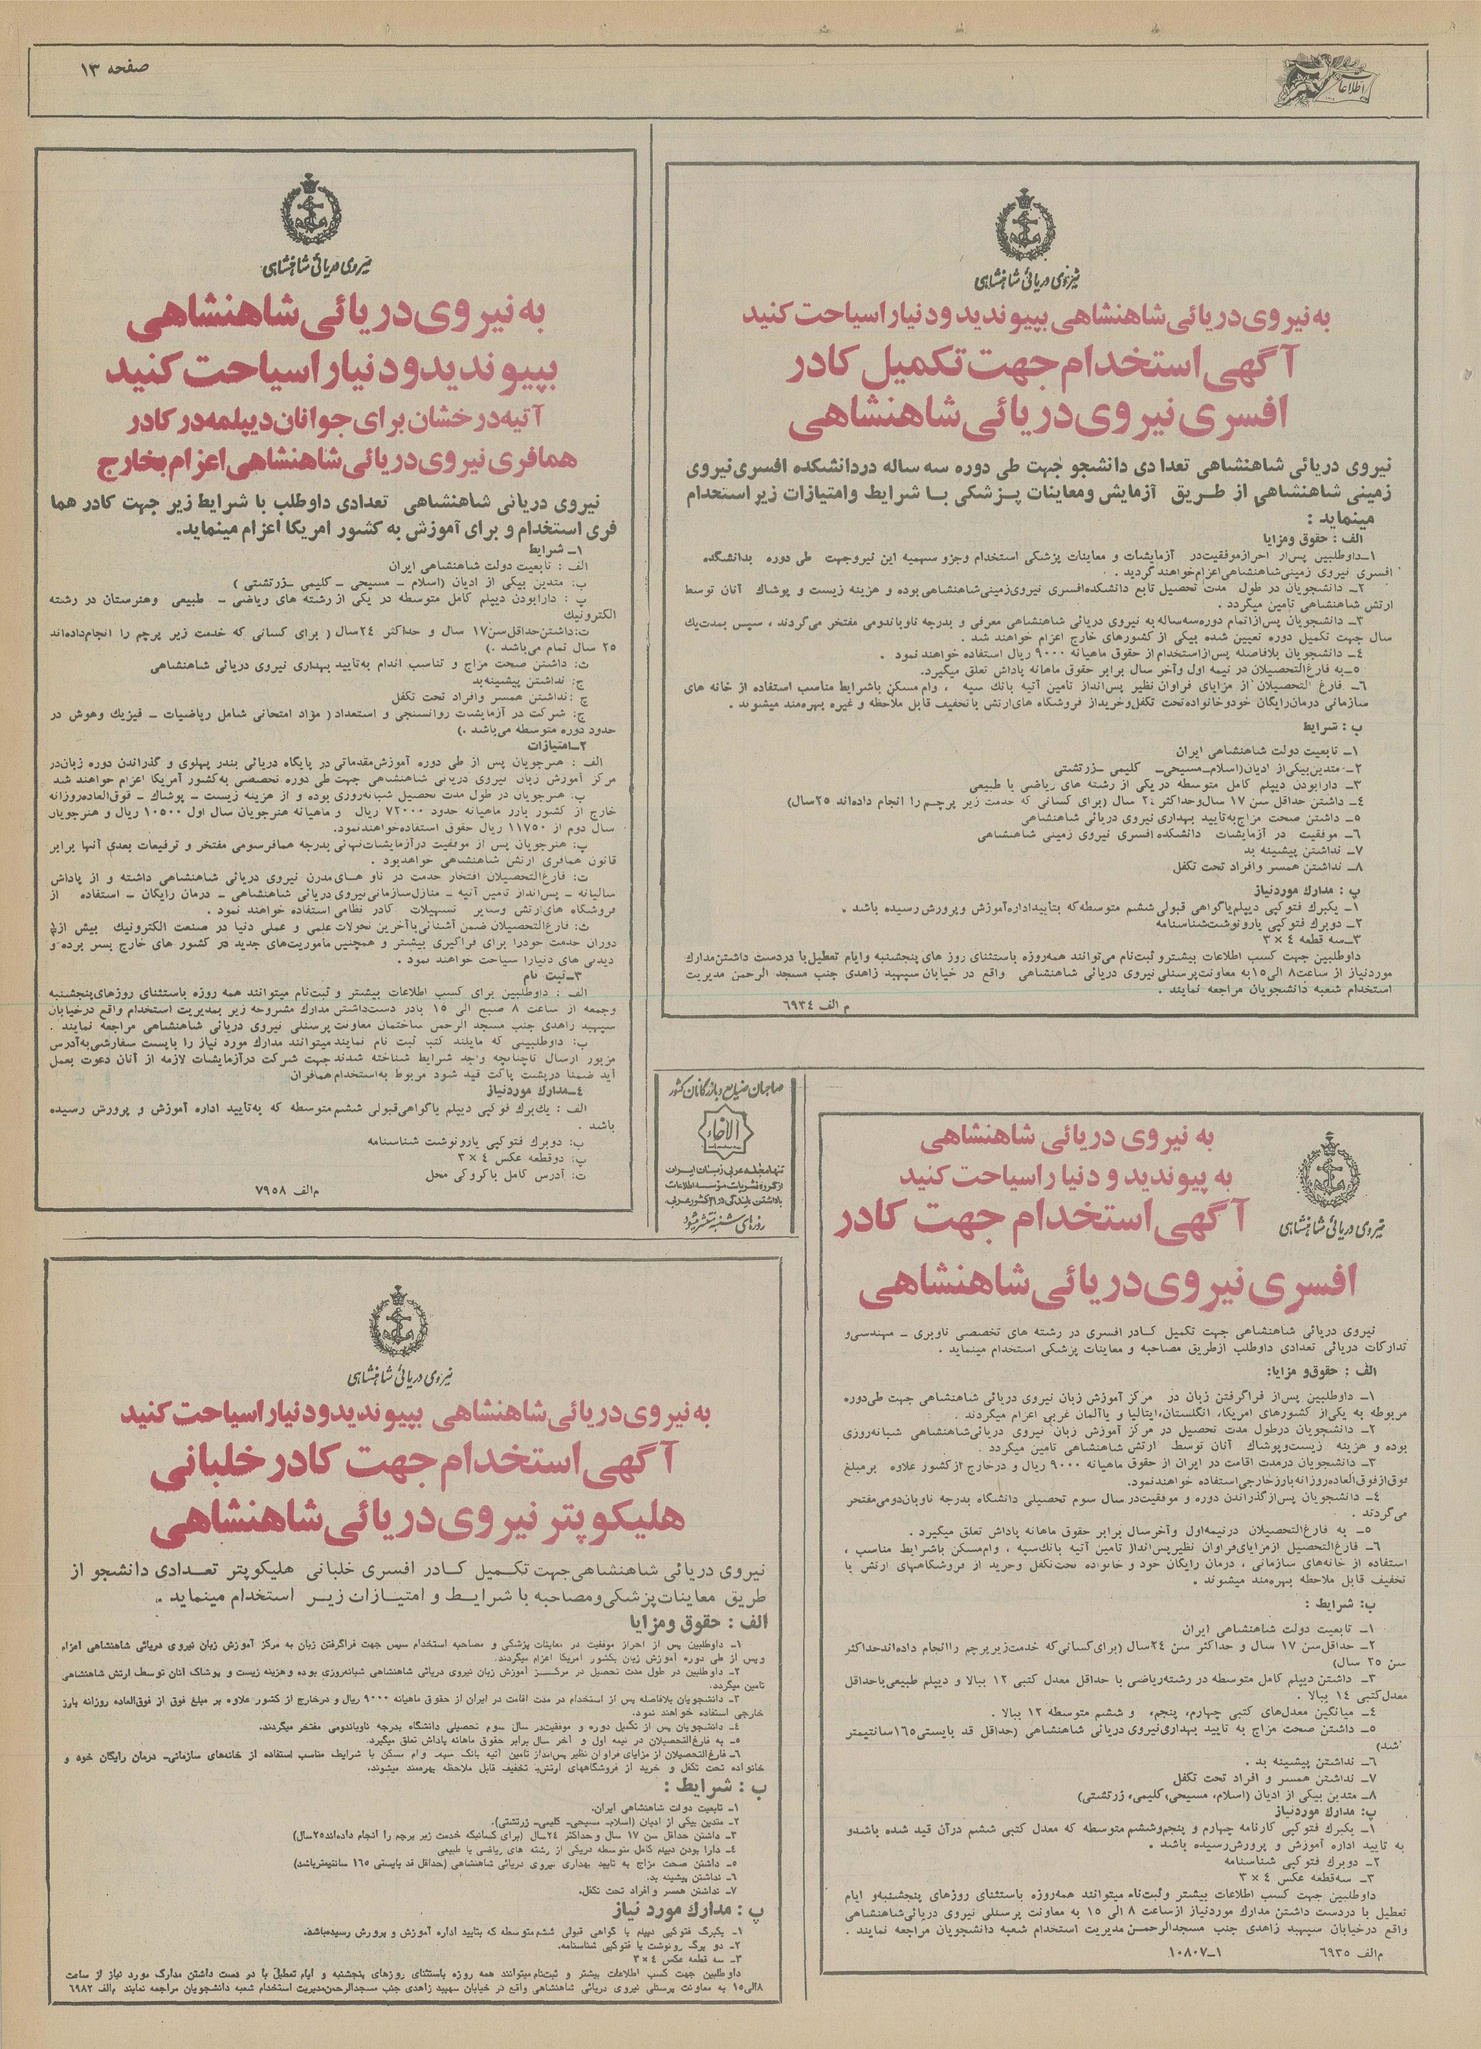 صفحه ۱۳
اطلاعات
نیروی دریائی شاهنشاهی
به نیروی دریائی شاهنشاهی بپیوندید و دنیا را سیاحت کنید
آگهی استخدام جهت تکمیل کادر
افسری نیروی دریائی شاهنشاهی
نیروی دریائی شاهنشاهی تعدادی دانشجو جهت طی دوره سه ساله دردانشکده افسری نیروی
زمینی شاهنشاهی از طریق آزمایش ومعاینات پزشکی با شرایط وامتیازات زیر استخدام
مینماید :
الف : حقوق ومزایا
۱ــ داوطلبین پس‌از احراز موفقیت‌در آزمایشات و معاینات پزشکی استخدام وجزو سهمیه این نیروجهت طی دوره بدانشکده
افسری نیروی زمینی شاهنشاهی اعزام خواهند گردید .
۲ــ دانشجویان در طول مدت تحصیل تابع دانشکده‌افسری نیروی‌زمینی‌شاهنشاهی بوده و هزینه زیست و پوشاک آنان توسط
ارتش شاهنشاهی تامین میگردد .
۳ــ دانشجویان پس‌ازاتمام دوره‌سه‌ساله به نیروی دریائی شاهنشاهی معرفی و بدرجه ناوباندومی مفتخر می‌گردند ، سپس بمدت‌یک
سال جهت تکمیل دوره تعیین شده بیکی از کشورهای خارج اعزام خواهند شد .
۴ــ دانشجویان بلافاصله پس‌ازاستخدام از حقوق ماهیانه ۹۰۰۰ ریال استفاده خواهند نمود .
۵ــ به فارغ‌التحصیلان در نیمه اول وآخر سال برابر حقوق ماهانه پاداش تعلق میگیرد.
۶ــ فارغ التحصیلان از مزایای فراوان نظیر پس‌انداز تامین آتیه بانك سپه ، وام مسکن باشرایط مناسب استفاده از خانه های
سازمانی درمان‌رایگان خودوخانواده‌تحت تکفل‌وخریداز فروشگاه های‌ارتش باتخفیف قابل ملاحظه و غیره بهره‌مند میشوند .
ب : شرایط
۱ــ تابعیت دولت شاهنشاهی ایران
۲ــ متدین بیکی از ادیان (اسلام ــ مسیحی ــ کلیمی ــ زرتشتی
۳ــ دارابودن دیپلم کامل متوسطه در یکی از رشته های ریاضی یا طبیعی
۴ــ داشتن حداقل سن ۱۷ سال‌وحداکثر ۲۴ سال (برای کسانی که خدمت زیر پرچم را انجام داده‌اند ۲۵سال)
۵ــ داشتن صحت مزاج به‌تایید بهداری نیروی دریائی شاهنشاهی
۶ــ موفقیت در آزمایشات دانشکده افسری نیروی زمینی شاهنشاهی
۷ــ نداشتن پیشینه بد
۸ــ نداشتن همسر وافراد تحت تکفل
پ : مدارك موردنیاز
۱ــ یکبرك فتوکپی دیپلم یاگواهی قبولی ششم متوسطه‌که بتأییداداره‌آموزش وپرورش رسیده باشد .
۲ــ دوبرك فتوکپی یارونوشت‌شناسنامه
۳ــ سه قطعه ۴ × ۳
داوطلبین جهت کسب اطلاعات بیشترو ثبت‌نام می‌توانند همه‌روزه باستثنای روز های پنجشنبه وایام تعطیل‌با دردست داشتن‌مدارك
موردنیاز از ساعت۸ الی۱۵به معاونت‌پرسنلی نیروی دریائی شاهنشاهی واقع در خیابان سپهبد زاهدی جنب مسجد الرحمن مدیریت
استخدام شعبه دانشجویان مراجعه نمایند .
م الف ۶۹۳۴
نیروی دریائی شاهنشاهی
به نیروی دریائی شاهنشاهی
بپیوندید و دنیا را سیاحت کنید
آتیه درخشان برای جوانان دیپلمه در کادر
همافری نیروی دریائی شاهنشاهی اعزام بخارج
نیروی دریائی شاهنشاهی تعدادی داوطلب با شرایط زیر جهت کادر هما
فری استخدام و برای آموزش به کشور امریکا اعزام مینماید.
۱ــ شرایط
الف : تابعیت دولت شاهنشاهی ایران
ب: متدین بیکی از ادیان (اسلام ــ مسیحی ــ کلیمی ــ زرتشتی )
پ : دارابودن دیپلم کامل متوسطه در یکی از رشته های ریاضی ــ طبیعی وهنرستان در رشته
الکترونیك
ت: داشتن‌حداقل‌سن ۱۷ سال و حداکثر ۲۴سال ( برای کسانی که خدمت زیر پرچم را انجام‌داده‌اند
۲۵ سال تمام می‌باشد .)
ث: داشتن صحت مزاج و تناسب اندام به‌تایید بهداری نیروی دریائی شاهنشاهی
ج: نداشتن پیشینه‌بد
چ : نداشتن همسر وافراد تحت تکفل
ح: شرکت در آزمایشات روانسنجی و استعداد ( مواد امتحانی شامل ریاضیات ــ فیزیك وهوش در
حدود دوره متوسطه می‌باشد .)
۲ــ امتیازات
الف : هنرجویان پس از طی دوره آموزش‌مقدماتی در پایگاه دریائی بندر پهلوی و گذراندن دوره زبان‌در
مرکز آموزش زبان نیروی دریائی شاهنشاهی جهت طی دوره تخصصی به‌کشور آمریکا اعزام خواهند شد
ب: هنرجویان در طول مدت تحصیل شبانه‌روزی بوده و از هزینه زیست ــ پوشاك ــ فوق‌العاده‌روزانه
خارج از کشور بارز ماهیانه حدود ۷۲۰۰۰ ریال و ماهیانه هنرجویان سال اول ۱۰۵۰۰ ریال و هنرجویان
سال دوم از ۱۱۷۵۰ ریال حقوق استفاده‌خواهندنمود.
پ: هنرجویان پس از موفقیت درآزمایشات‌نهائی بدرجه همافرسومی مفتخر و ترفیعات بعدی آنها برابر
قانون همافری ارتش شاهنشاهی خواهدبود .
ت: فارغ‌التحصیلان افتخار خدمت در ناو های مدرن نیروی دریائی شاهنشاهی داشته و از پاداش
سالیانه ــ پس‌انداز تامین آتیه ــ منازل‌سازمانی‌نیروی دریائی شاهنشاهی ــ درمان رایگان ــ استفاده از
فروشگاه های‌ارتش وسایر تسهیلات کادر نظامی استفاده خواهند نمود .
ث: فارغ‌التحصیلان ضمن آشنائی‌باآخرین تحولات علمی و عملی دنیا در صنعت الکترونیك بیش از
دوران خدمت خودرا برای فراگیری بیشتر و همچنین ماموریت‌های جدید در کشور های خارج بسر برده و
دیدنی های دنیارا سیاحت خواهند نمود .
۳ــ ثبت نام
الف : داوطلبین برای کسب اطلاعات بیشتر و ثبت‌نام میتوانند همه روزه باستثنای روزهای‌پنجشنبه
وجمعه از ساعت ۸ صبح الی ۱۵ بادر دست‌داشتن مدارك مشروحه زیر بمدیریت استخدام واقع درخیابان
سپهبد زاهدی جنب مسجد الرحمن ساختمان معاونت پرسنلی نیروی دریائی شاهنشاهی مراجعه نمایند .
ب: داوطلبینی که مایلند کتب ثبت نام نمایند میتوانند مدارك مورد نیاز را باپست سفارشی‌به‌آدرس
مزبور ارسال تاچنانچه واجد شرایط شناخته شدند جهت شرکت درآزمایشات لازمه از آنان دعوت بعمل
آید ضمنا درپشت پاکت قید شود مربوط به‌استخدام همافران
۴ــ مدارك موردنیاز
الف : یك‌برك فوکپی دیپلم یاگواهی‌قبولی ششم متوسطه که به‌تأیید اداره آموزش و پرورش رسیده
باشد .
ب: دوبرك فتوکپی یارونوشت شناسنامه
پ: دوقطعه عکس ۴ × ۳
ت: آدرس کامل باکروکی محل
م‌الف ۷۹۵۸
صاحبان صنایع و بازرگانان کشور
الاخاء
تنها مجله عربی زبان ایران
از گروه نشریات موسسه اطلاعات
با داشتن نمایندگی در ۲۱ کشور عربی
روزهای شنبه منتشر میشود
به نیروی دریائی شاهنشاهی
به پیوندید و دنیا را سیاحت کنید
آگهی استخدام جهت کادر
افسری نیروی دریائی شاهنشاهی
نیروی دریائی شاهنشاهی
نیروی دریائی شاهنشاهی جهت تکمیل کادر افسری در رشته های تخصصی ناوبری ــ مهندسی‌و
تدارکات دریائی تعدادی داوطلب ازطریق مصاحبه و معاینات پزشکی استخدام مینماید .
الف : حقوق‌و مزایا:
۱ــ داوطلبین پس‌از فراگرفتن زبان در مرکز آموزش زبان نیروی دریائی شاهنشاهی جهت طی‌دوره
مربوطه به یکی‌از کشورهای امریکا، انگلستان،ایتالیا و یاآلمان غربی اعزام میگردند .
۲ــ دانشجویان درطول مدت تحصیل در مرکز آموزش زبان نیروی دریائی‌شاهنشاهی شبانه‌روزی
بوده و هزینه زیست‌وپوشاك آنان توسط ارتش شاهنشاهی تامین میگردد .
۳ــ دانشجویان درمدت اقامت در ایران از حقوق ماهیانه ۹۰۰۰ ریال و درخارج ازکشور علاوه برمبلغ
فوق‌ازفوق‌العاده‌روزانه‌بارزخارجی‌استفاده خواهندنمود.
۴ــ دانشجویان پس‌ازگذراندن دوره و موفقیت‌در سال سوم تحصیلی دانشگاه بدرجه ناوبان‌دومی‌مفتخر
می‌گردند .
۵ــ به فارغ‌التحصیلان درنیمه‌اول وآخرسال برابر حقوق ماهانه پاداش تعلق میگیرد .
۶ــ فارغ‌التحصیل ازمزایای‌فراوان نظیرپس‌انداز تامین آتیه بانك‌سپه ، وام‌مسکن باشرایط مناسب ،
استفاده از خانه‌های سازمانی ، درمان رایگان خود و خانواده تحت‌تکفل وخرید از فروشگاههای ارتش با
تخفیف قابل ملاحظه بهره‌مند میشوند .
ب: شرایط :
۱ــ تابعیت دولت شاهنشاهی ایران
۲ــ حداقل‌سن ۱۷ سال و حداکثر سن ۲۴سال (برای‌کسانی‌که خدمت‌زیرپرچم راانجام داده‌اندحداکثر
سن ۲۵ سال)
۳ــ داشتن دیپلم کامل متوسطه در رشته‌ریاضی با حداقل معدل کتبی ۱۲ ببالا و دیپلم طبیعی‌باحداقل
معدل‌کتبی ۱۴ ببالا .
۴ــ میانگین معدل‌های کتبی چهارم، پنجم، و ششم متوسطه ۱۲ ببالا .
۵ــ داشتن صحت مزاج به تایید بهداری‌نیروی دریائی شاهنشاهی (حداقل قد بایستی۱۶۵سانتیمتر
باشد)
۶ــ نداشتن پیشینه بد .
۷ــ نداشتن همسر و افراد تحت تکفل
۸ــ متدین بیکی از ادیان (اسلام، مسیحی،کلیمی، زرتشتی)
پ: مدارك موردنیاز
۱ــ یکبرك فتوکپی کارنامه چهارم و پنجم‌وششم متوسطه که معدل کتبی ششم درآن قید شده باشدو
به تایید اداره آموزش و پرورش‌رسیده باشد .
۲ــ دوبرك فتوکپی شناسنامه
۳ــ سه‌قطعه عکس ۴ × ۳
داوطلبین جهت کسب اطلاعات بیشتر وثبت‌نام میتوانند همه‌روزه باستثنای روزهای پنجشنبه‌و ایام
تعطیل با دردست داشتن مدارك موردنیاز ازساعت ۸ الی ۱۵ به معاونت پرسنلی نیروی دریائی‌شاهنشاهی
واقع درخیابان سپهبد زاهدی جنب مسجدالرحمن مدیریت استخدام شعبه دانشجویان مراجعه نمایند .
م‌الف ۶۹۳۵ ۱ــ۱۰۸۰۷
نیروی دریائی شاهنشاهی
به نیروی دریائی شاهنشاهی بپیوندید و دنیا را سیاحت کنید
آگهی استخدام جهت کادر خلبانی
هلیکوپتر نیروی دریائی شاهنشاهی
نیروی دریائی شاهنشاهی جهت تکمیل کادر افسری خلبانی هلیکوپتر تعدادی دانشجو از
طریق معاینات پزشکی ومصاحبه با شرایط و امتیازات زیر استخدام مینماید .
الف : حقوق ومزایا
۱ــ داوطلبین پس از احراز موفقیت در معاینات پزشکی و مصاحبه استخدام سپس جهت فراگرفتن زبان به مرکز آموزش زبان نیروی دریائی شاهنشاهی اعزام
وپس از طی دوره آموزش زبان بکشور امریکا اعزام میگردند.
۲ــ داوطلبین در طول مدت تحصیل در مرکز آموزش زبان نیروی دریائی شاهنشاهی شبانه‌روزی بوده و هزینه زیست و پوشاک آنان توسط ارتش شاهنشاهی
تامین میگردد.
۳ــ دانشجویان بلافاصله پس از استخدام در مدت اقامت در ایران از حقوق ماهیانه ۹۰۰۰ ریال و درخارج از کشور علاوه بر مبلغ فوق از فوق‌العاده روزانه بارز
خارجی استفاده خواهند نمود.
۴ــ دانشجویان پس از تکمیل دوره و موفقیت‌در سال سوم تحصیلی دانشگاه بدرجه ناوباندومی مفتخر میگردند.
۵ــ به فارغ‌التحصیلان در نیمه اول و آخر سال برابر حقوق ماهانه پاداش تعلق میگیرد.
۶ــ فارغ‌التحصیلان از مزایای فراوان نظیر پس‌انداز تامین آتیه بانک سپه، وام مسکن با شرایط مناسب استفاده از خانه‌های سازمانی، درمان رایگان خود و
خانواده تحت تکفل و خرید از فروشگاههای ارتش‌با تخفیف قابل ملاحظه بهره‌مند میشوند.
ب : شرایط :
۱ــ تابعیت دولت شاهنشاهی ایران.
۲ــ متدین بیکی از ادیان (اسلام، مسیحی، کلیمی، زرتشتی).
۳ــ داشتن حداقل سن ۱۷ سال و حداکثر ۲۴سال (برای کسانیکه خدمت زیر پرچم را انجام داده‌اند۲۵سال)
۴ــ دارا بودن دیپلم کامل متوسطه دریکی از رشته های ریاضی یا طبیعی
۵ــ داشتن صحت مزاج به تایید بهداری نیروی دریائی شاهنشاهی (حداقل قد بایستی ۱۶۵ سانتیمترباشد)
۶ــ نداشتن پیشینه بد.
۷ــ نداشتن همسر و افراد تحت تکفل.
پ : مدارك مورد نیاز
۱ــ یکبرگ فتوکپی دیپلم یا گواهی قبولی ششم متوسطه که بتایید اداره آموزش و پرورش رسیده‌باشد.
۲ــ دو برگ رونوشت یا فتوکپی شناسنامه.
۳ــ سه قطعه عکس ۴ × ۳
داوطلبین جهت کسب اطلاعات بیشتر و ثبت‌نام میتوانند همه روزه باستثنای روزهای پنجشنبه و ایام تعطیل با در دست داشتن مدارک مورد نیاز از ساعت
۸الی۱۵ به معاونت پرسنلی نیروی دریائی شاهنشاهی واقع در خیابان سپهبد زاهدی جنب مسجدالرحمن‌مدیریت استخدام شعبه دانشجویان مراجعه نمایند م‌الف ۶۹۸۲